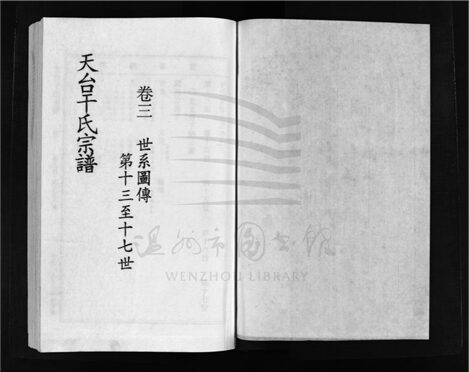 天台干氏宗譜
卷三 世系圖傳
第十三至十七世
温州市图书馆
WENZHOU LIBRARY